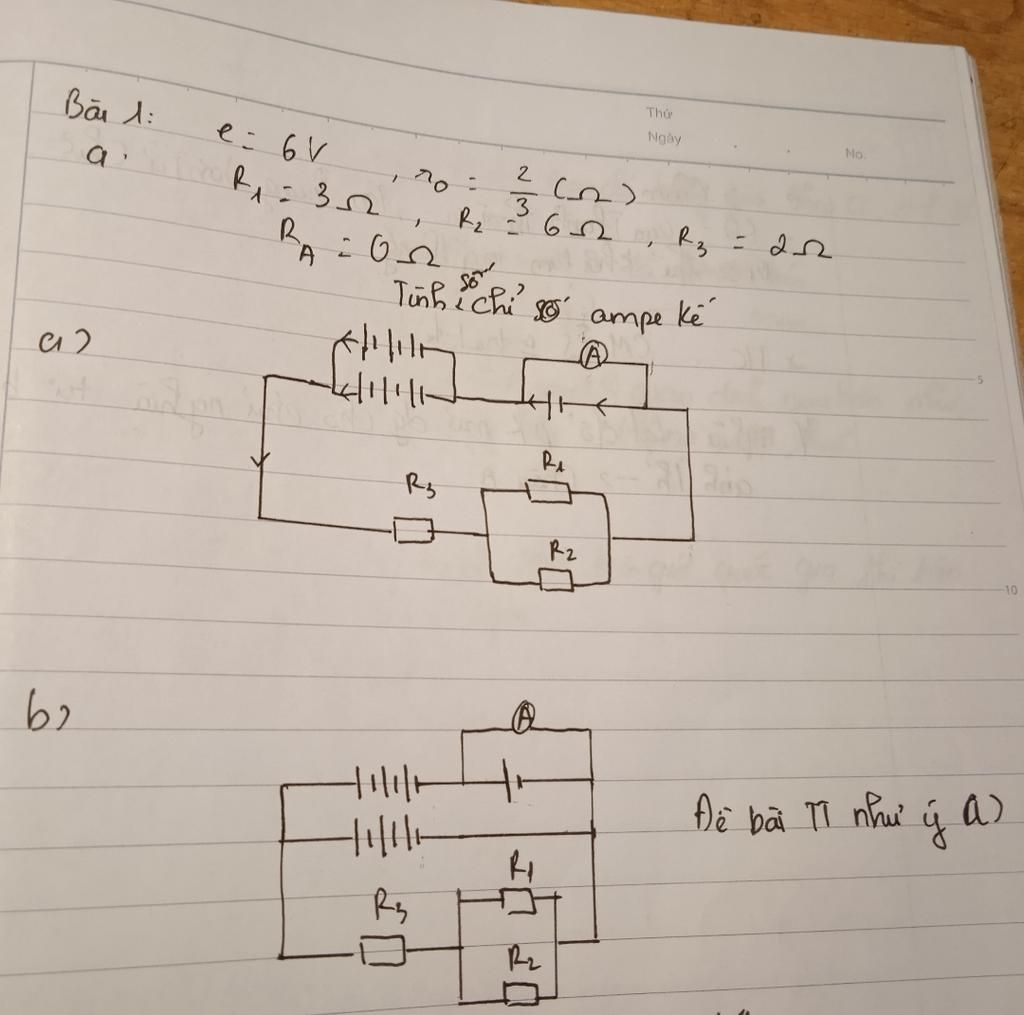 Thứ
Ngày
No.
Bài 1:
a.
e = 6V , r0 = 2/3 (Ω)
R1 = 3Ω , R2 = 6Ω , R3 = 2Ω
RA = 0Ω
Tính số chỉ ampe kế
a)
A
5
R1
R3
R2
10
b)
A
Đề bài TT như ý a)
R1
R3
R2